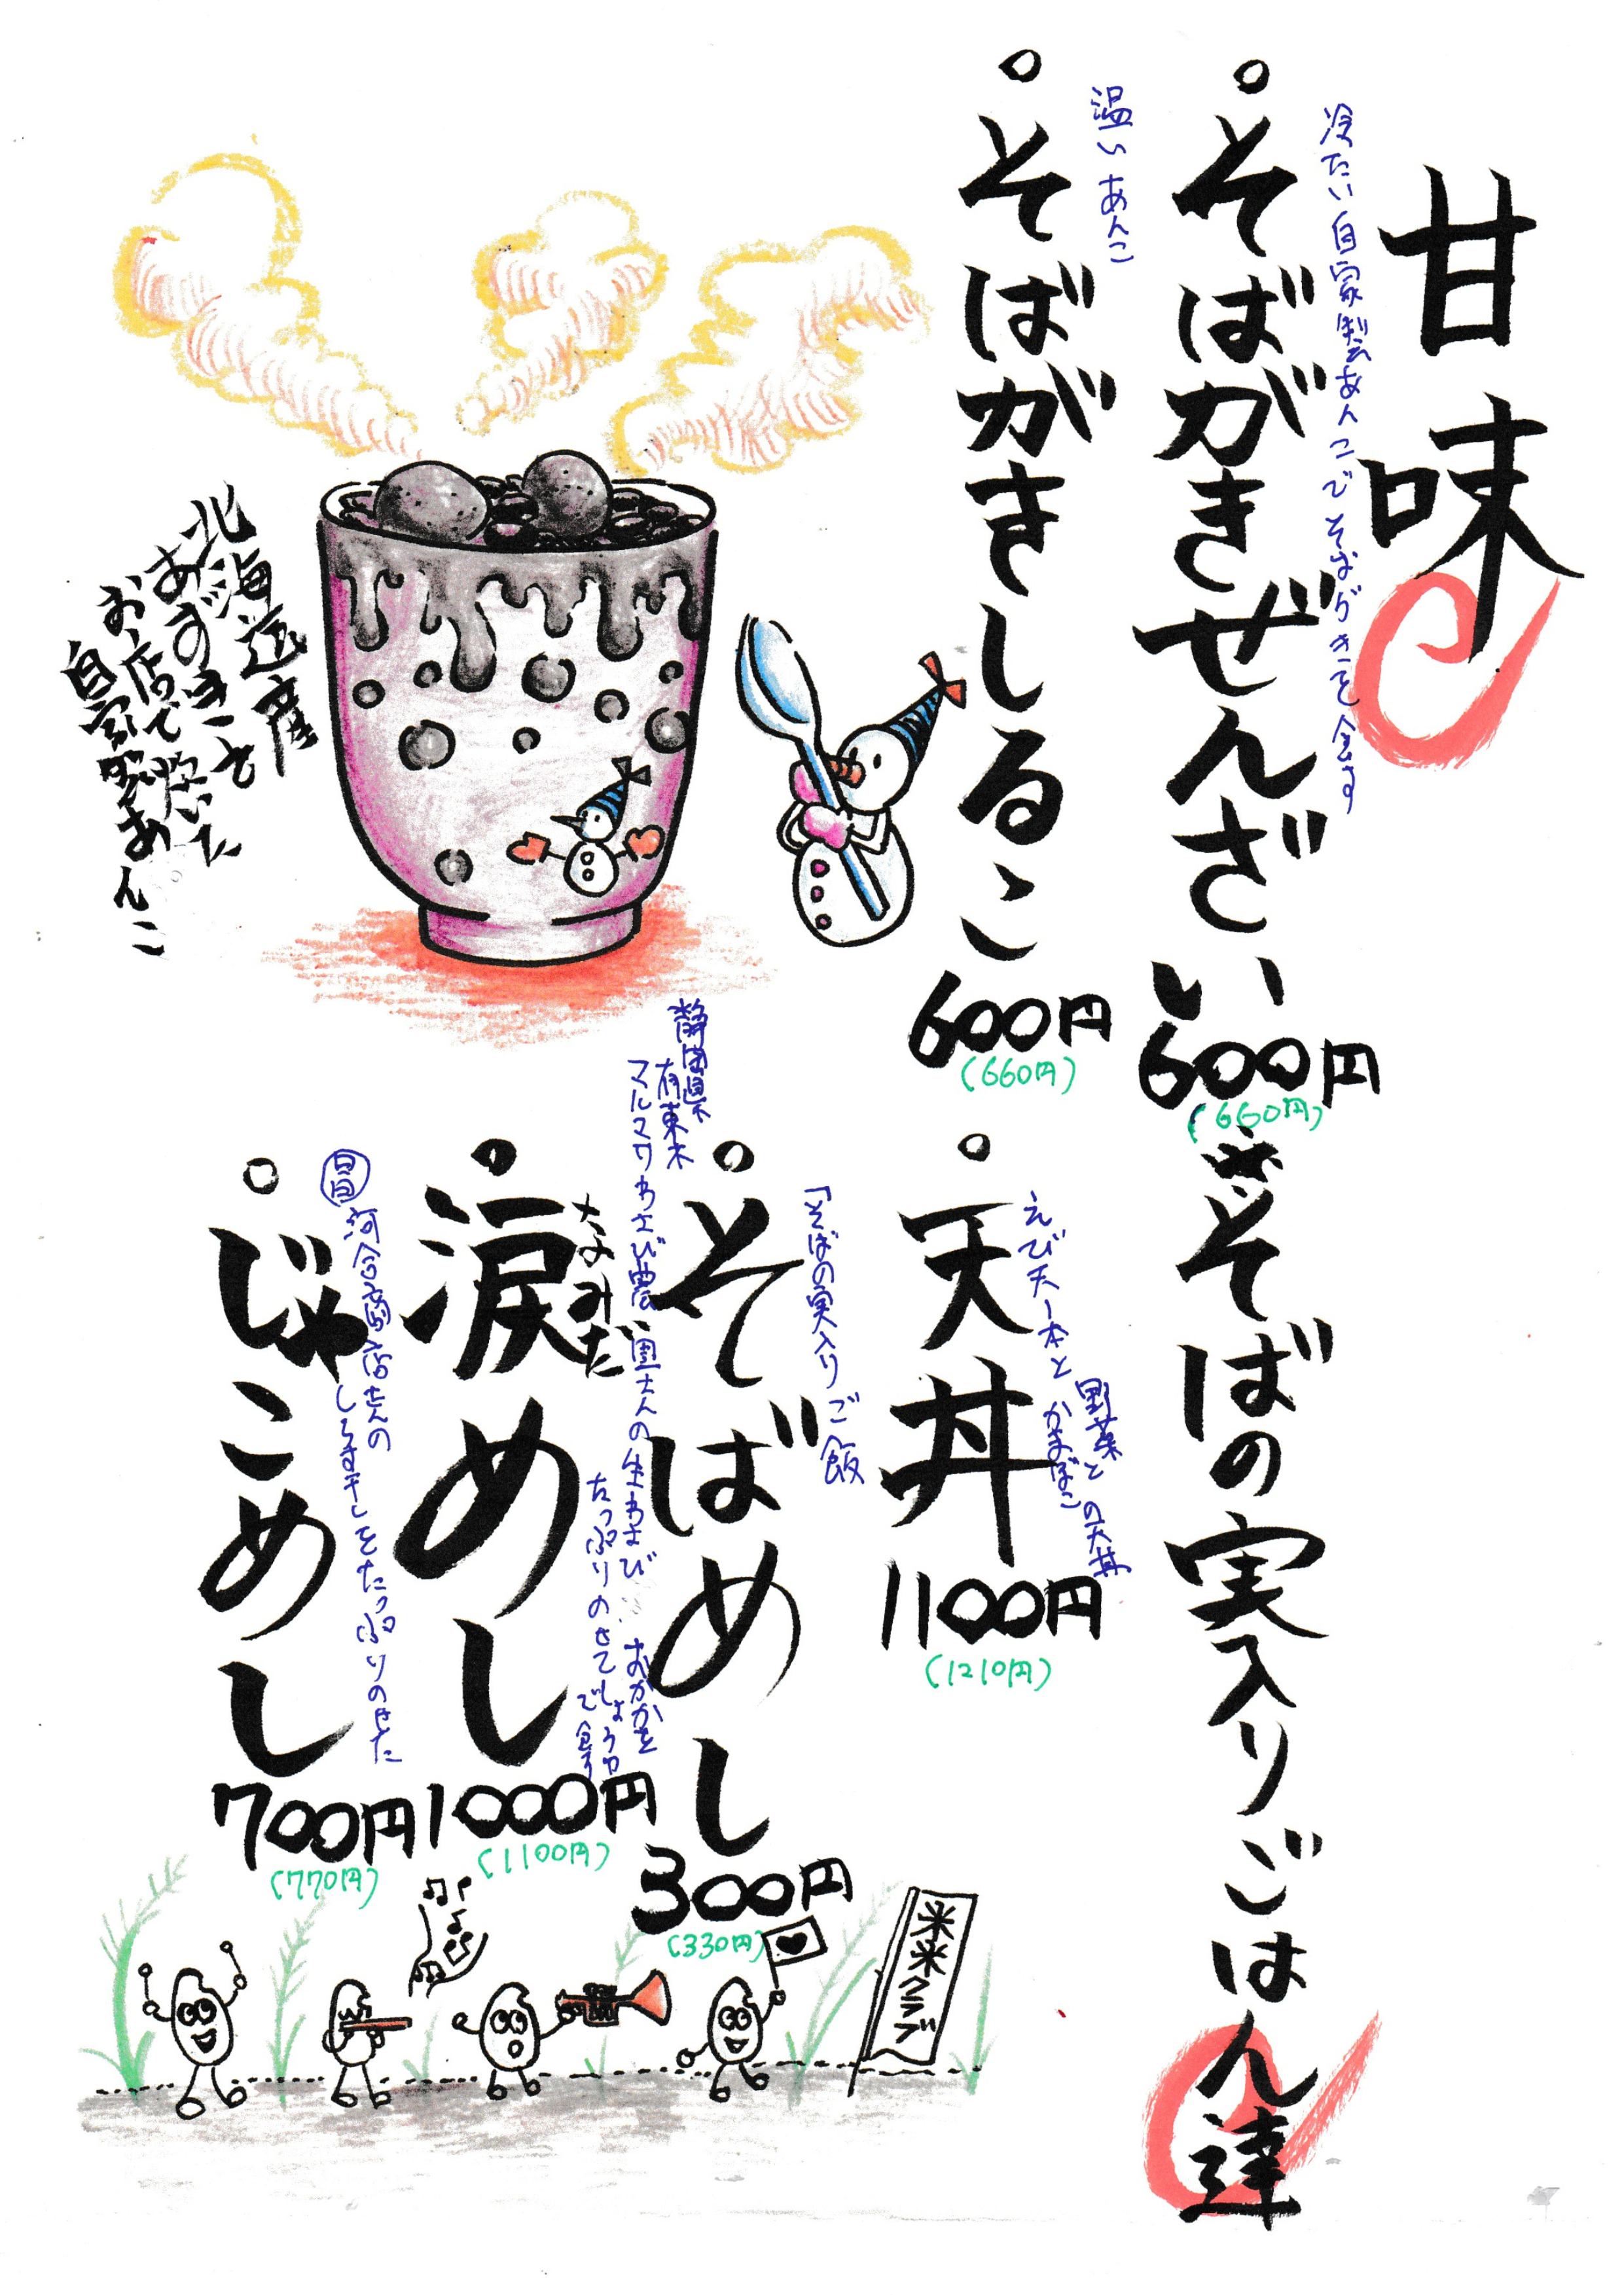 甘味
冷たい自家製あんこでそばがきを食す
・そばがきぜんざい 600円
(660円)
温いあんこ
・そばがきしるこ 600円
(660円)
北海道産
あずきを
お店で炊いた
自家製あんこ
※そばの実入りごはん達
えび天一本と野菜と
かまぼこの天丼
・天丼 1100円
(1210円)
「そばの実入りご飯
・そばめし 300円
(330円)
静岡県
有東木
マルマワわさび農園さんの生わさび おかかを
たっぷりのせてしょうゆ
で食す
・涙めし 1000円
なみだ
(1100円)
しらす干しをたっぷりのせた
・じゃこめし 700円
(770円)
米米クラブ